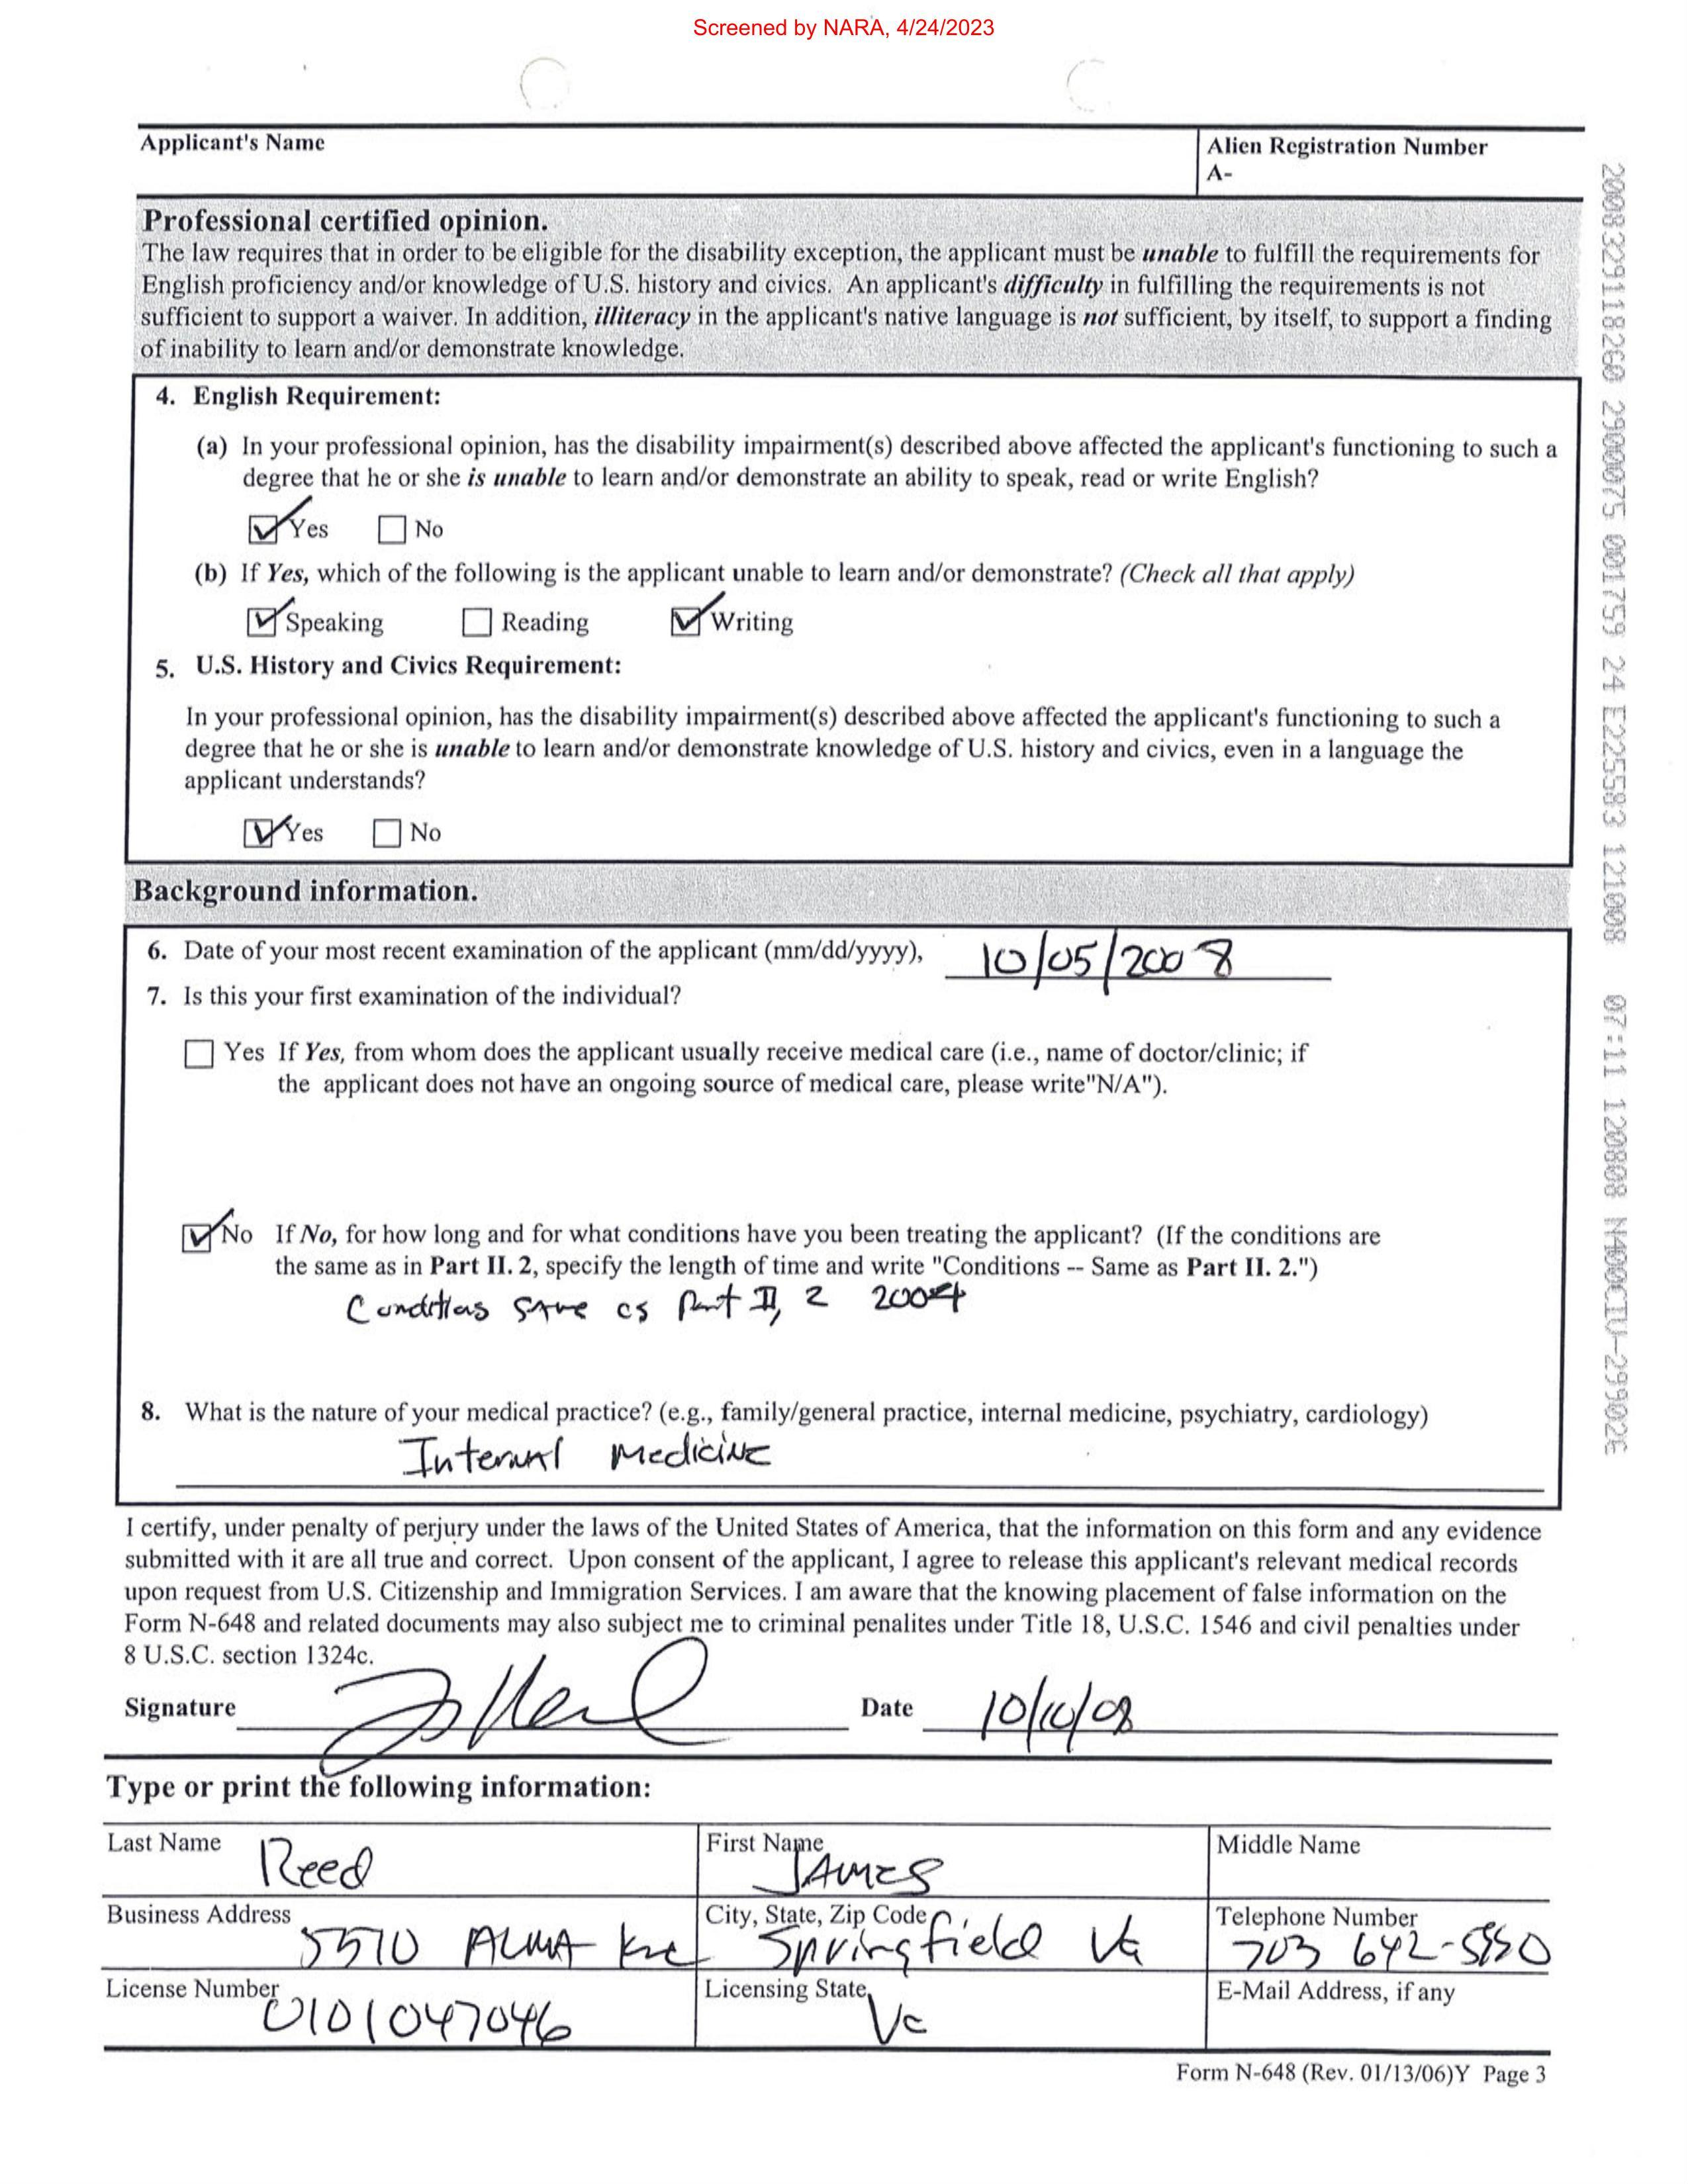 Screened by NARA, 4/24/2023
Applicant's Name
Alien Registration Number
A-
Professional certified opinion.
The law requires that in order to be eligible for the disability exception, the applicant must be unable to fulfill the requirements for
English proficiency and/or knowledge of U.S. history and civics. An applicant's difficulty in fulfilling the requirements is not
sufficient to support a waiver. In addition, illiteracy in the applicant's native language is not sufficient, by itself, to support a finding
of inability to learn and/or demonstrate knowledge.
4. English Requirement:
(a) In your professional opinion, has the disability impairment(s) described above affected the applicant's functioning to such a
degree that he or she is unable to learn and/or demonstrate an ability to speak, read or write English?
Yes No
(b) If Yes, which of the following is the applicant unable to learn and/or demonstrate? (Check all that apply)
Speaking Reading Writing
5. U.S. History and Civics Requirement:
In your professional opinion, has the disability impairment(s) described above affected the applicant's functioning to such a
degree that he or she is unable to learn and/or demonstrate knowledge of U.S. history and civics, even in a language the
applicant understands?
Yes No
Background information.
6. Date of your most recent examination of the applicant (mm/dd/yyyy), 10/05/2008
7. Is this your first examination of the individual?
Yes If Yes, from whom does the applicant usually receive medical care (i.e., name of doctor/clinic; if
the applicant does not have an ongoing source of medical care, please write"N/A").
No If No, for how long and for what conditions have you been treating the applicant? (If the conditions are
the same as in Part II. 2, specify the length of time and write "Conditions -- Same as Part II. 2.")
Conditions same as Part II, 2 2004
8. What is the nature of your medical practice? (e.g., family/general practice, internal medicine, psychiatry, cardiology)
Internal Medicine
I certify, under penalty of perjury under the laws of the United States of America, that the information on this form and any evidence
submitted with it are all true and correct. Upon consent of the applicant, I agree to release this applicant's relevant medical records
upon request from U.S. Citizenship and Immigration Services. I am aware that the knowing placement of false information on the
Form N-648 and related documents may also subject me to criminal penalites under Title 18, U.S.C. 1546 and civil penalties under
8 U.S.C. section 1324c.
Signature Date
Type or print the following information:
Last Name Reed
First Name James
Middle Name
Business Address 5510 ALMA
City, State, Zip Code Springfield Va
Telephone Number 703
License Number 0101047046
Licensing State Va
E-Mail Address, if any
Form N-648 (Rev. 01/13/06)Y Page 3
2008329118260 2900075 001759 24 E225583 121008 07:11 120808 N400CIU-299026